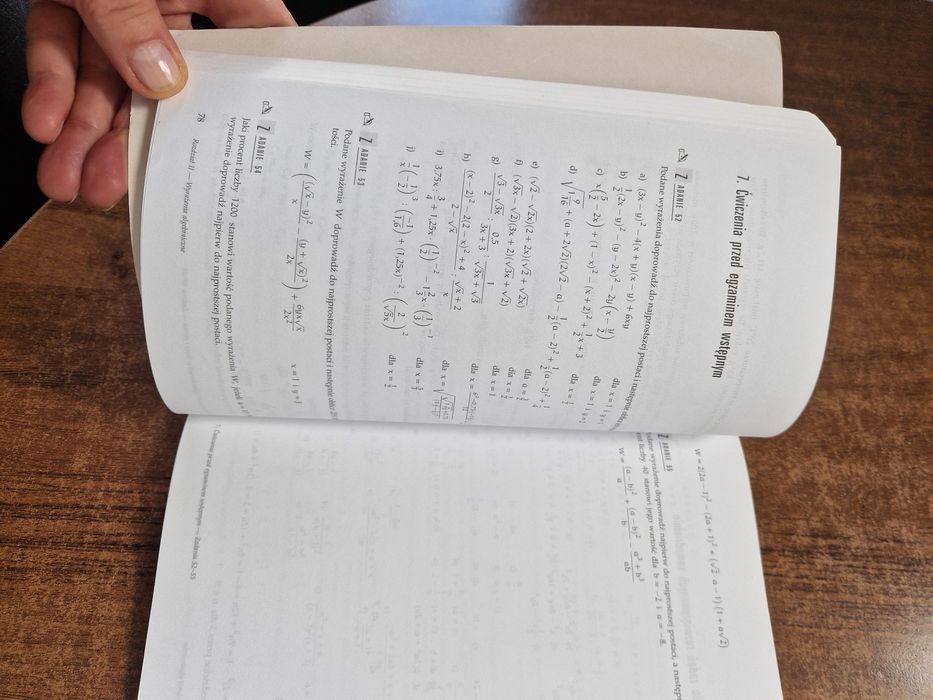 7. Ćwiczenia przed egzaminem wstępnym
ZADANIE 52
Podane wyrażenia doprowadź do najprostszej postaci i następnie oblicz
a) (3x − y)² − 4(x + y)(x − y) + 6xy dla x =
b) 1/2(2x − y)² − (y − 2x)² − 2y(x − y/2) dla x = 1 i y =
c) x(5/2 − 2x) + (1 − x)² − (x + 2)² + 1/2x + 3
d) √(9/16) + (a + 2√2)(2√2 − a) − 1/2(a − 2)² + 1/2(a − 2)² +
e) (√2 − √2x)(2 + 2x)(√2 + √2x)
f) (√3x − √2)(3x + 2)(√3x + √2)
g) (√3 − √3x)/2 : 0,5/(3x + 3) : 1/(√3x + √3) dla x = 1
h) ((x − 2)² − 2(2 − x)² + 4)/(2 − √x) : x/(√x + 2) dla x =
i) 3,75x : 3/4 + 1,25x · (1/2)⁻² − 1 2/3x · (1/3)⁻¹ dla x =
j) 1/x(−1/2)³ : (−1/16) + (1,25x)⁻² · (2/√5x)² dla x = 1/2
ZADANIE 53
Podane wyrażenie W doprowadź do najprostszej postaci i następnie oblicz
tości.
W = ((√x − y)²/x − (y + √x)²/2x) + 6yx√x/2x² x = 1 i y =
ZADANIE 54
Jaki procent liczby 1200 stanowi wartość podanego wyrażenia W, jeżeli
wyrażenie doprowadź najpierw do najprostszej postaci.
78 Rozdział II — Wyrażenia algebraiczne
W = 2(2a − 1)² − (2a + 1)² + (√2 · a − 1) (1 + a√2)
ZADANIE 55
wyrażenie doprowadź najpierw do najprostszej postaci, a
liczby 40 stanowi jego wartość dla b = −2 i a = −8.
W = (a − b)²/a + (a − b)²/b − (a³ + b³)/ab
7. Ćwiczenia przed egzaminem wstępnym — Zadania 52–55